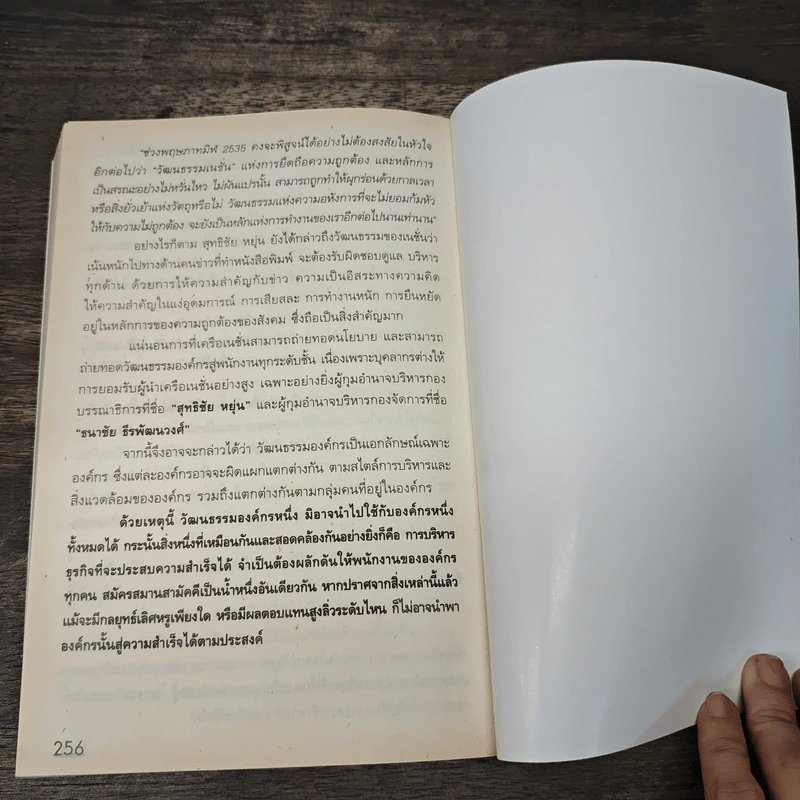 "ช่วงพฤษภาทมิฬ 2535 คงจะพิสูจน์ได้อย่างไม่ต้องสงสัยในหัวใจ
อีกต่อไปว่า "วัฒนธรรมเนชั่น" แห่งการยึดถือความถูกต้อง และหลักการ
เป็นสรณะอย่างไม่หวั่นไหว ไม่ผันแปรนั้น สามารถถูกทำให้ผุกร่อนด้วยกาลเวลา
หรือสิ่งยั่วเย้าแห่งวัตถุหรือไม่ วัฒนธรรมแห่งความอหังการที่จะไม่ยอมก้มหัว
ให้กับความไม่ถูกต้อง จะยังเป็นหลักแห่งการทำงานของเราอีกต่อไปนานเท่านาน"
อย่างไรก็ตาม สุทธิชัย หยุ่น ยังได้กล่าวถึงวัฒนธรรมของเนชั่นว่า
เน้นหนักไปทางด้านคนข่าวที่ทำหนังสือพิมพ์ จะต้องรับผิดชอบดูแล บริหาร
ทุกด้าน ด้วยการให้ความสำคัญกับข่าว ความเป็นอิสระทางความคิด
ให้ความสำคัญในแง่อุดมการณ์ การเสียสละ การทำงานหนัก การยืนหยัด
อยู่ในหลักการของความถูกต้องของสังคม ซึ่งถือเป็นสิ่งสำคัญมาก
แน่นอนการที่เครือเนชั่นสามารถถ่ายทอดนโยบาย และสามารถ
ถ่ายทอดวัฒนธรรมองค์กรสู่พนักงานทุกระดับชั้น เนื่องเพราะบุคลากรต่างให้
การยอมรับผู้นำเครือเนชั่นอย่างสูง เฉพาะอย่างยิ่งผู้กุมอำนาจบริหารกอง
บรรณาธิการที่ชื่อ "สุทธิชัย หยุ่น" และผู้กุมอำนาจบริหารกองจัดการที่ชื่อ
"ธนาชัย ธีรพัฒนวงศ์"
จากนี้จึงอาจจะกล่าวได้ว่า วัฒนธรรมองค์กรเป็นเอกลักษณ์เฉพาะ
องค์กร ซึ่งแต่ละองค์กรอาจจะผิดแผกแตกต่างกัน ตามสไตล์การบริหารและ
สิ่งแวดล้อมขององค์กร รวมถึงแตกต่างกันตามกลุ่มคนที่อยู่ในองค์กร
ด้วยเหตุนี้ วัฒนธรรมองค์กรหนึ่ง มิอาจนำไปใช้กับองค์กรหนึ่ง
ทั้งหมดได้ กระนั้นสิ่งหนึ่งที่เหมือนกันและสอดคล้องกันอย่างยิ่งก็คือ การบริหาร
ธุรกิจที่จะประสบความสำเร็จได้ จำเป็นต้องผลักดันให้พนักงานขององค์กร
ทุกคน สมัครสมานสามัคคีเป็นน้ำหนึ่งอันเดียวกัน หากปราศจากสิ่งเหล่านี้แล้ว
แม้จะมีกลยุทธ์เลิศหรูเพียงใด หรือมีผลตอบแทนสูงลิ่วระดับไหน ก็ไม่อาจนำพา
องค์กรนั้นสู่ความสำเร็จได้ตามประสงค์
256